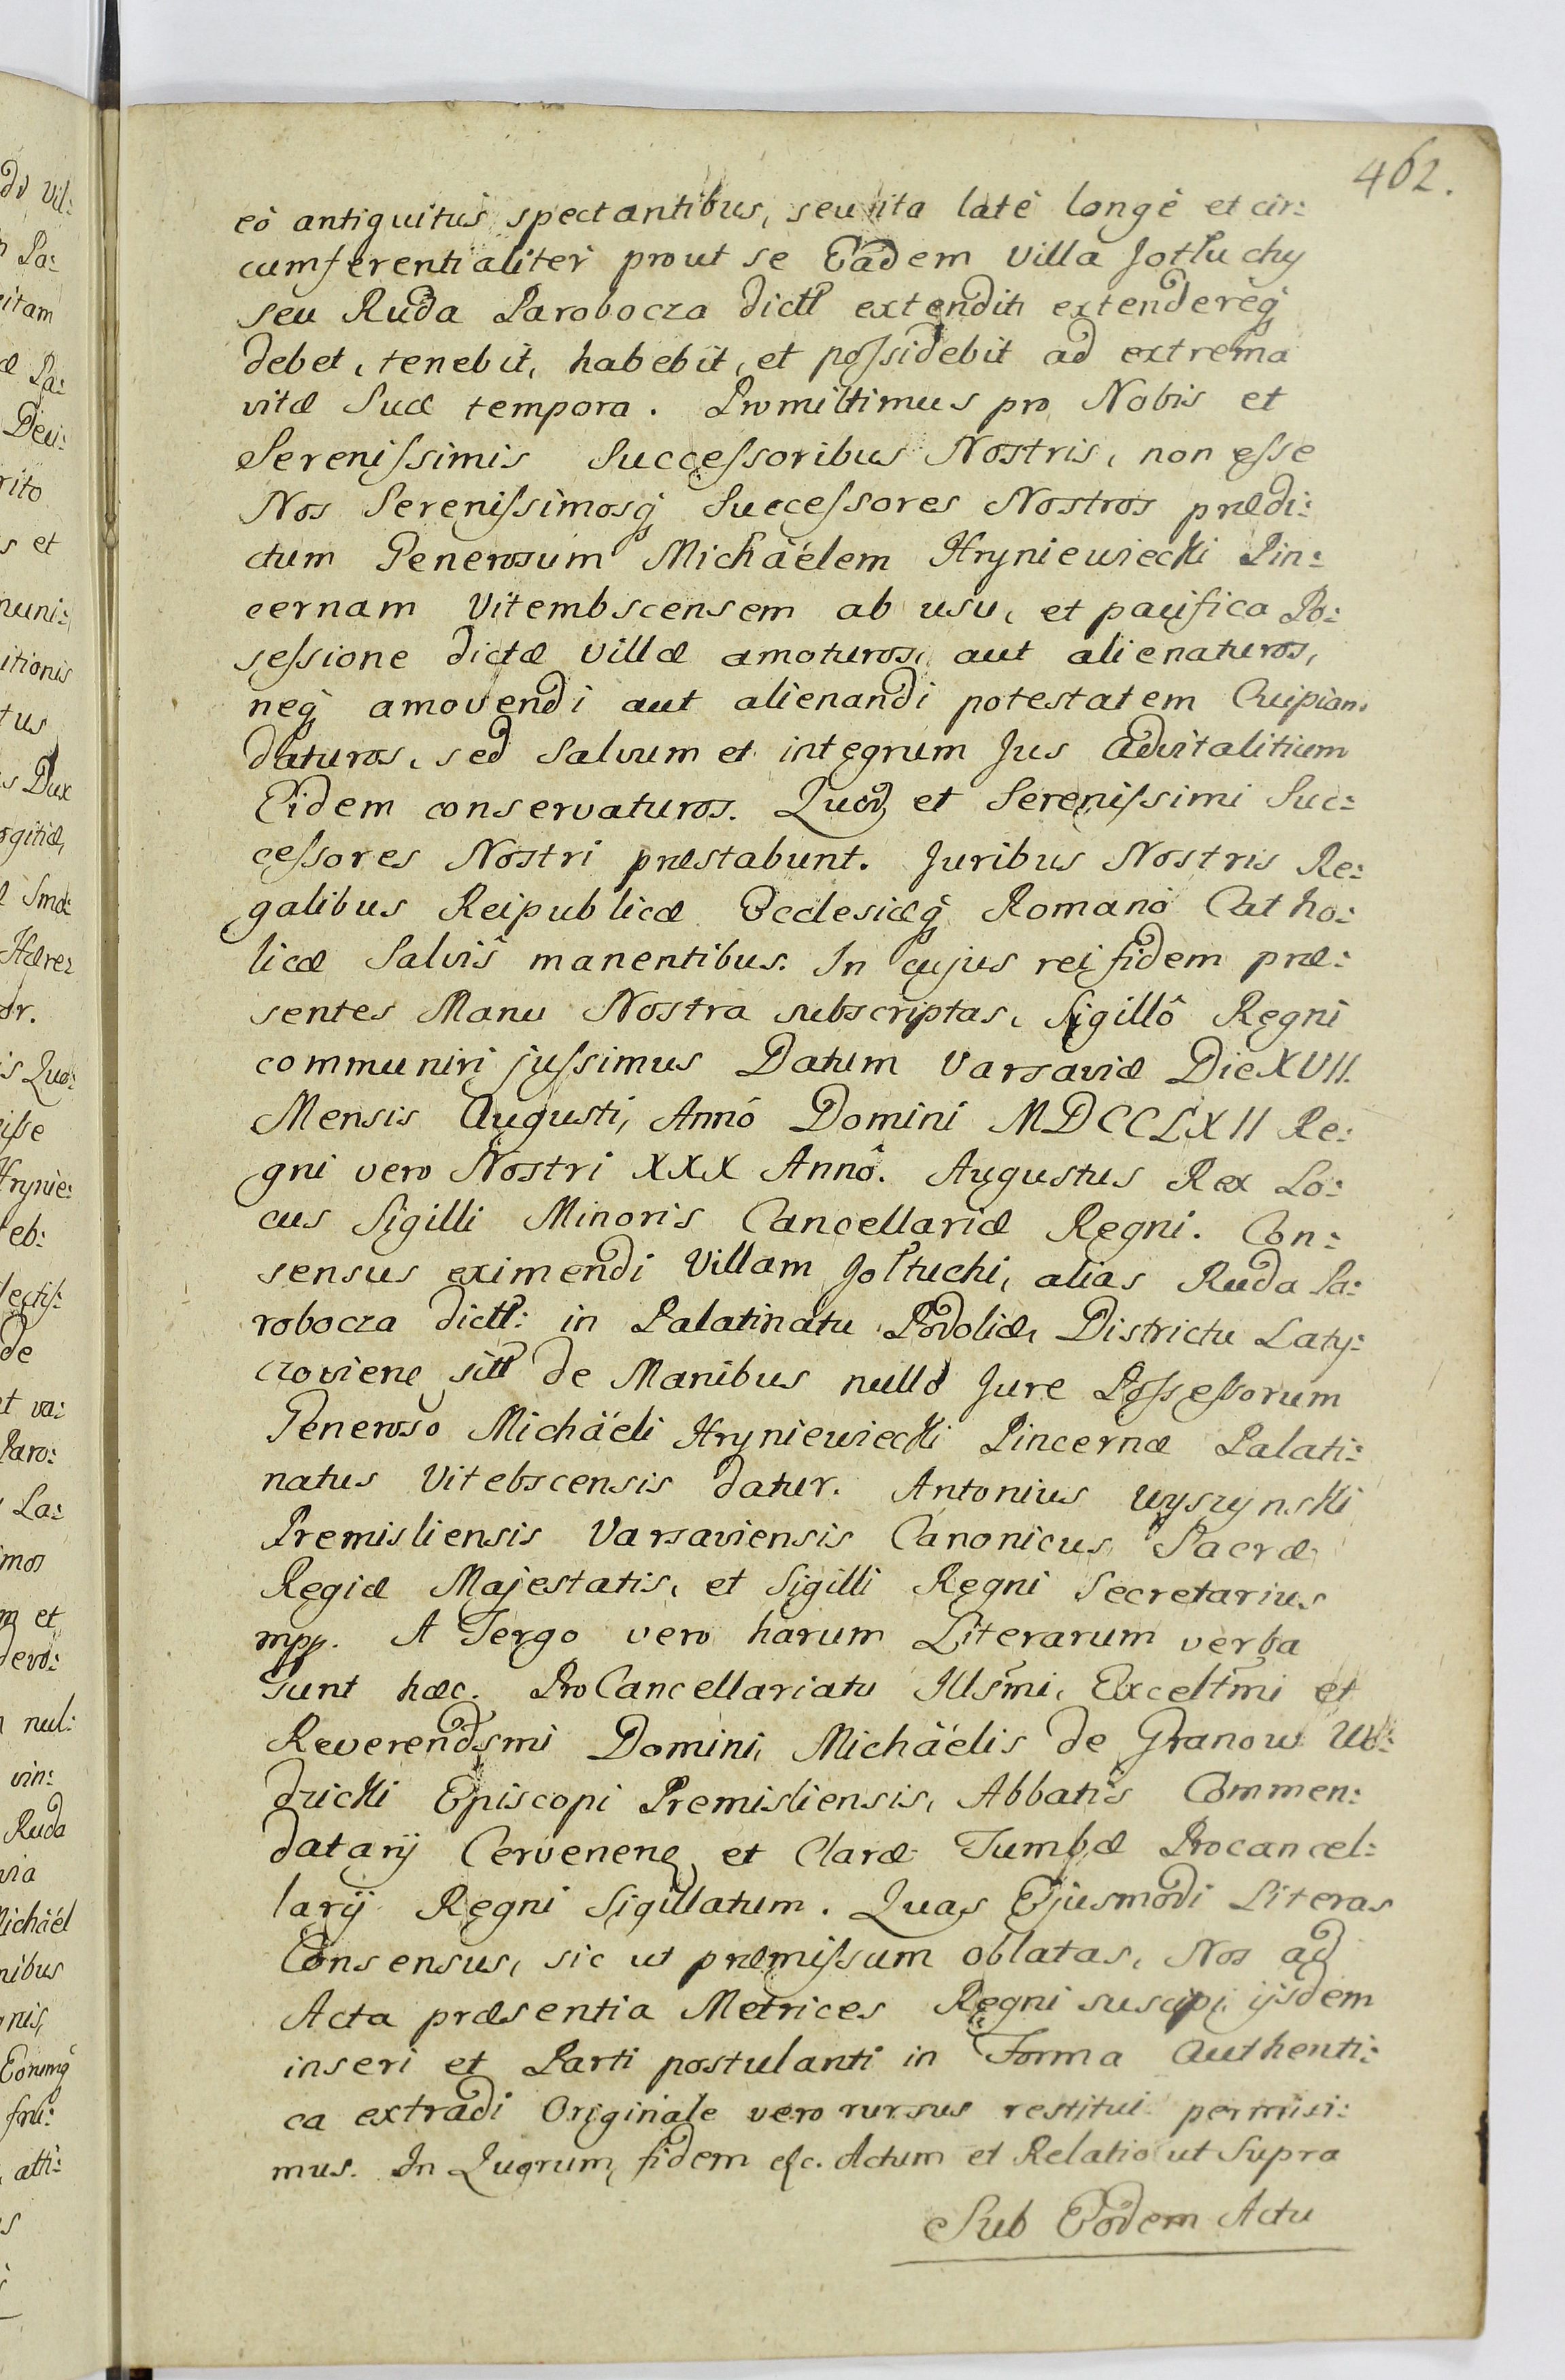 462.
eò antiquitus spectantibus, seu ita latè longè et cir:
cumferentialiter prout se Eadem Villa Jołtuchy
seu Ruda Parobocza dictt extendit extendereq
debet, tenebit, habebit, et poſsidebit ad extrema
vitæ Suæ tempora. Promittimus pro Nobis et
Sereniſsimis Succeſsoribus Nostris, non eſse
Nos Sereniſsimosq Succeſsores Nostros prædi:
ctum Generosum Michaëlem Hryniewiecki Pin:
cernam Vitembscensem ab usu, et pacifica Po:
seſsione dictæ villæ amoturos, aut alienaturos,
neq amovendi aut alienandi potestatem Cuipiam
daturos, sed Salvum et integrum Jus Advitalitium
Eidem conservaturos. Quod et Sereniſsimi Suc:
ceſsores Nostri præstabunt. Juribus Nostris Re:
galibus Reipublicæ Ecclesiæq Romano Catho:
licæ Salvis manentibus. In cujus rei fidem præ:
sentes Manu Nostra subscriptas, Sigillô Regni
communiri juſsimus Datum Varsaviæ Die XVII.
Mensis Augusti, Annó Domini MDCCLXII Re:
gni vero Nostri XXX Annô. Augustus Rex Lo:
cus Sigilli Minoris Cancellariæ Regni. Con:
sensus eximendi Villam Jołtuchi, alias Ruda Pa:
robocza dictt: in Palatinatu Podoliæ, Districtu Laty:
czoviene sitt de Manibus nulló Jure Poſseſsorum
Generoso Michäeli Hryniewiecki Pincernæ Palati:
natus Vitebscensis datur. Antonius Wyszynski
Premisliensis Varsaviensis Canonicus, Sacræ
Regiæ Majestatis, et Sigilli Regni Secretarius
mpp. A Tergo vero harum Literarum verba
sunt hæc. ProCancellariatu Illsmi, Excelltmi et
Reverendsmi Domini, Michäélis de Granow Wo:
dzicki Episcopi Premisliensis, Abbatis Commen:
datarij Cervenenq et Claræ Tumbæ Procancel:
larij Regni Sigillatum. Quas Ejusmodi Literas
Consensus, sic ut præmiſsum oblatas, Nos ad
Acta præsentia Metrices Regni suscipi, ijsdem
inseri et Parti postulanti in Forma Authenti:
ca extradi Originale vero rursus restitui permisi:
mus. In Quorum fidem etc. Actum et Relatio ut Supra
Sub Eodem Actu